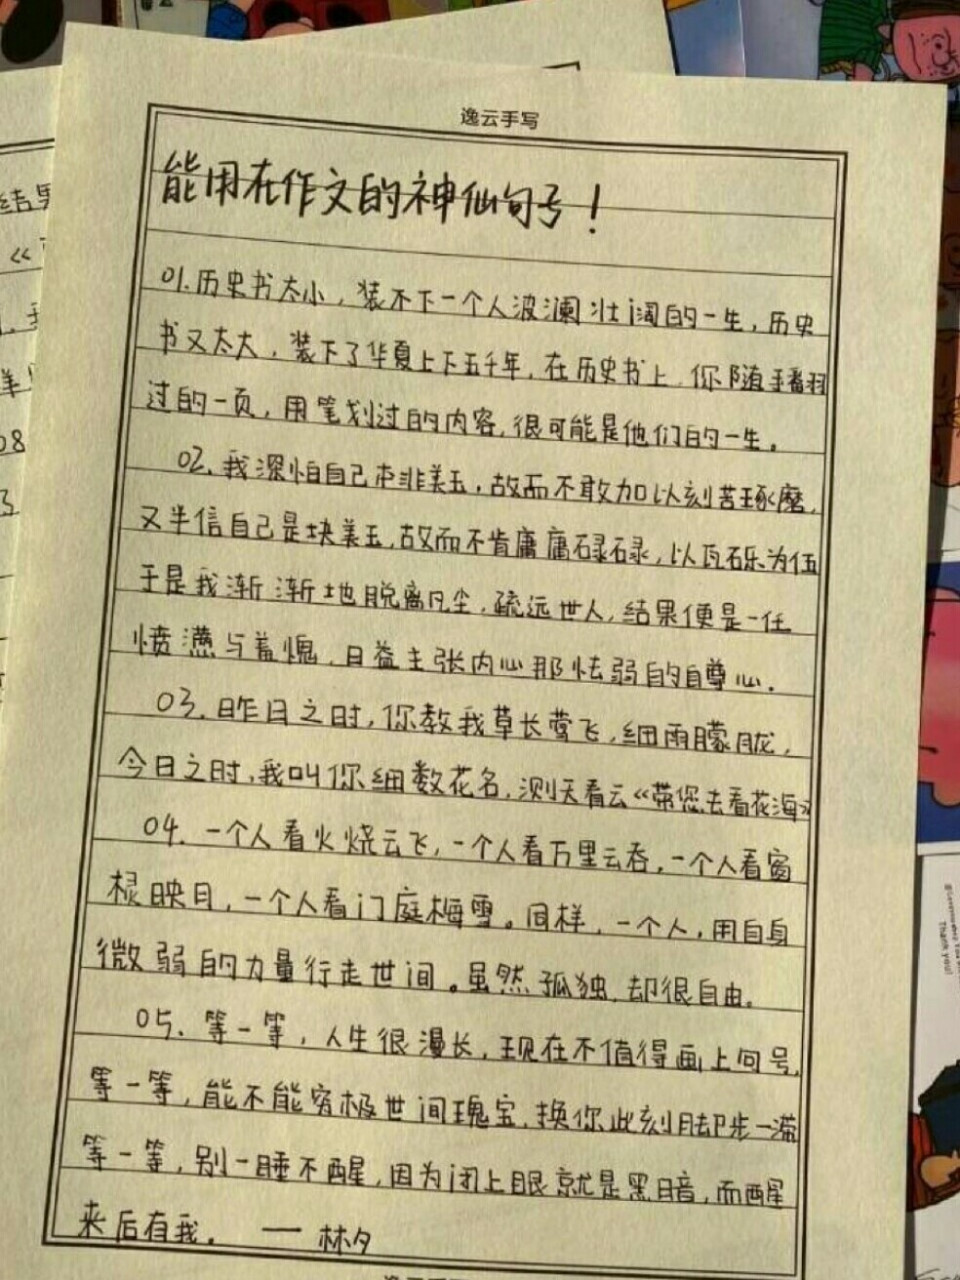 逸云手写
能用在作文的神仙句号！
01.历史书太小，装不下一个人波澜壮阔的一生，历史
书又太大，装下了华夏上下五千年，在历史书上，你随手翻
过的一页，用笔划过的内容，很可能是他们的一生。
02.我深怕自己本非美玉，故而不敢加以刻苦琢磨，
又半信自己是块美玉，故而不肯庸庸碌碌，以瓦砾为伍
于是我渐渐地脱离凡尘，疏远世人，结果便是一任
愤懑与羞愧，日益主张内心那怯弱的自尊心.
03.昨日之时，你教我草长莺飞，细雨朦胧，
今日之时，我叫你细数花名，测天看云《带您去看花海》
04.一个人看火烧云飞，一个人看万里云吞，一个人看窗
棂映月，一个人看门庭梅雪。同样，一个人，用自身
微弱的力量行走世间。虽然孤独，却很自由.
05.等一等，人生很漫长，现在不值得画上问号，
等一等，能不能穷极世间瑰宝，换你此刻脚步一滞
等一等，别一睡不醒，因为闭上眼就是黑暗，而醒
来后有我. — 林夕
结果
《
08
Thank you!